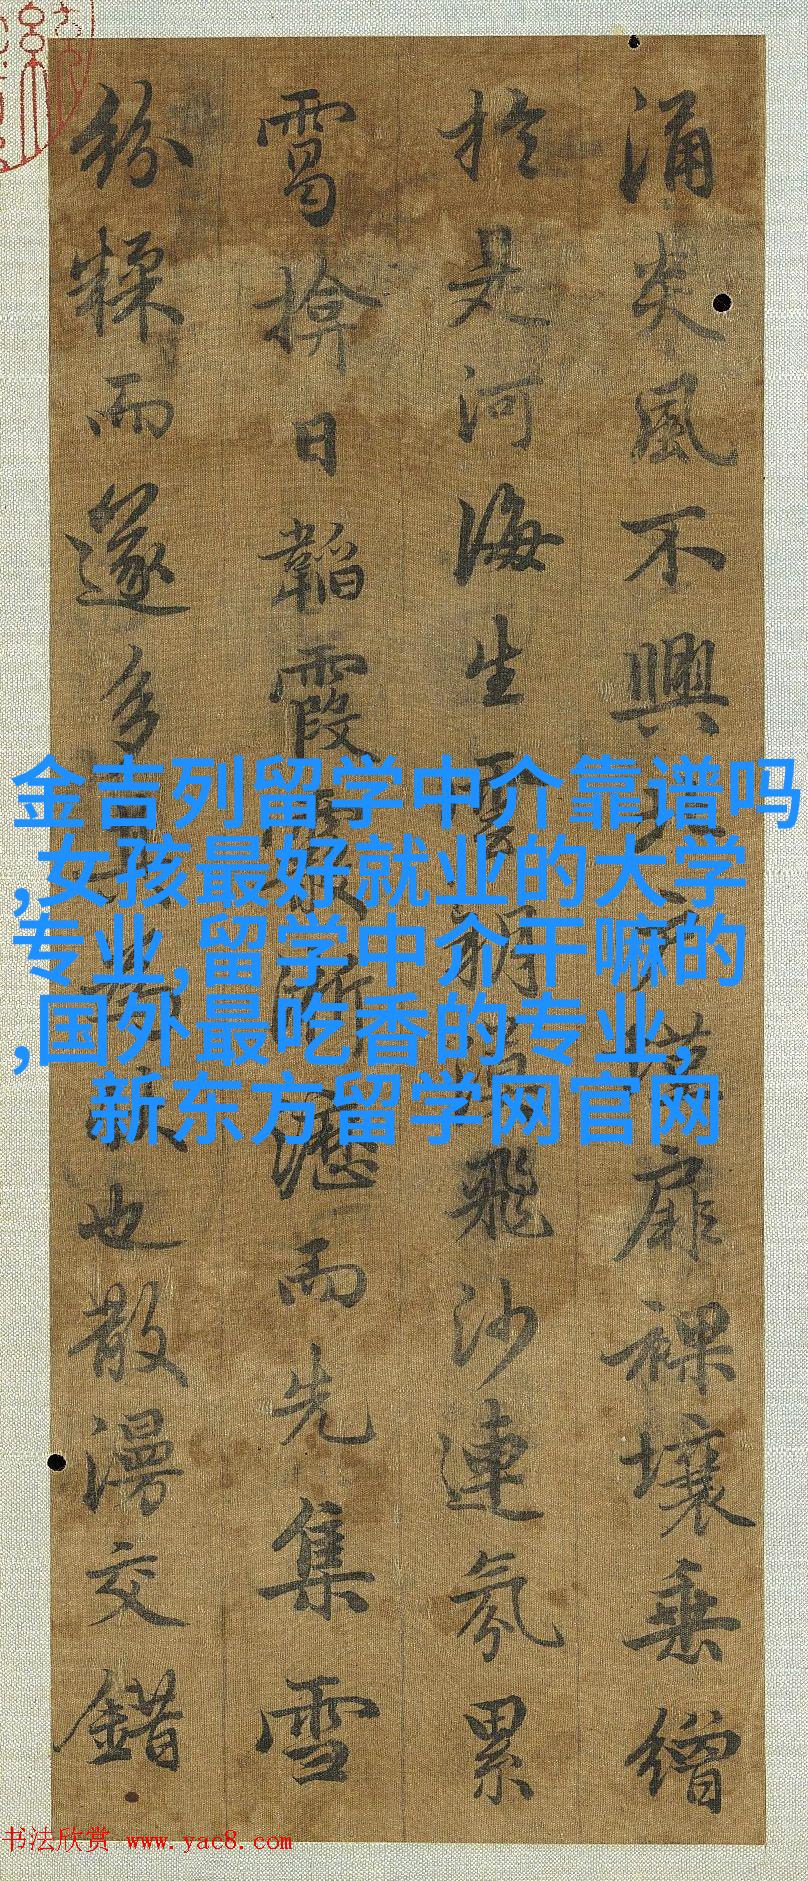 金吉列留学中介靠谱吗
,女孩最好就业的大学
专业,留学中介干嘛的
,国外最吃香的专业,
新东方留学网官网
涌炎風不興北户墐扉裸壤垂繒
於是河海生雲朔漠飛沙連氛累
靄揜日韜霞霰淅瀝而先集雪
紛糅而遂多其為狀也散漫交錯
书法欣赏 www.yac8.com